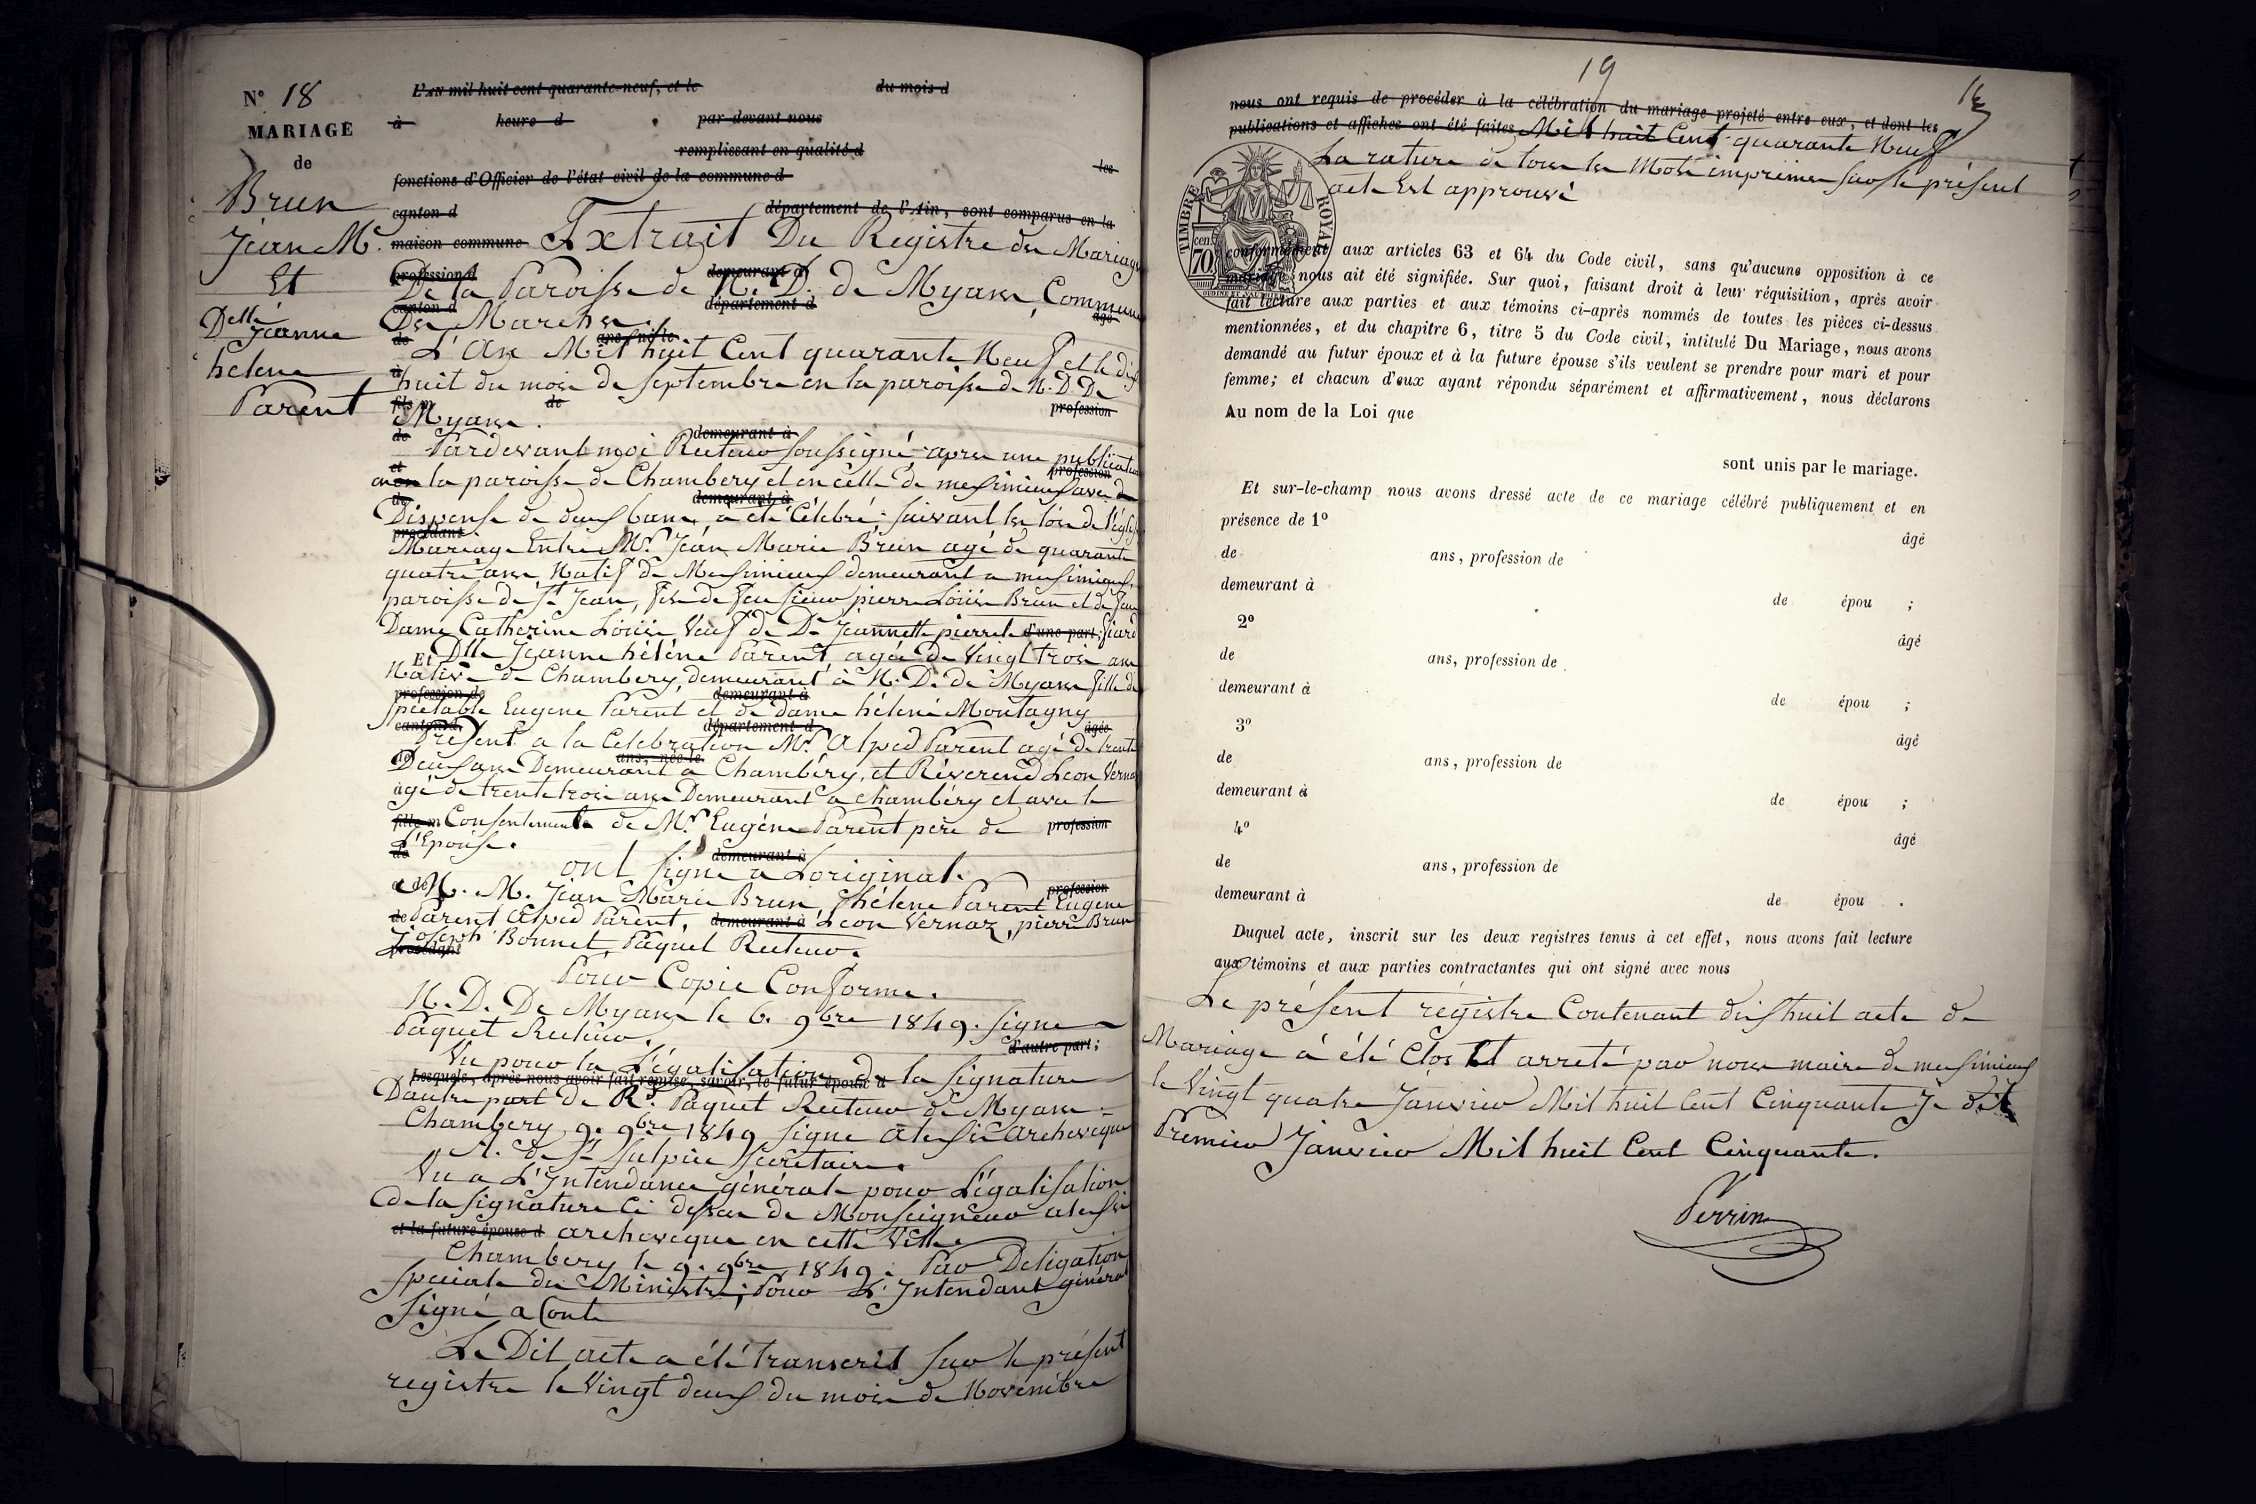 N° 18
MARIAGE
de
Brun
Jean M.
Et
Delle
Jeanne
helene
Parent
L'AN mil huit cent quarante-neuf, et le du mois d
à heure d par-devant nous
remplissant en qualité d
les
fonctions d'Officier de l'état civil de la commune d
canton d département de l'Ain, sont comparus en la
maison commune Extrait Du Registre des Mariages
profession d demeurant à
De la Paroisse de N. D. de Myans, Commune
canton d département d
Des Marches. âgé
de ans, né le
L'An Mil huit Cent quarante Neuf et le dix
à
huit du mois de Septembre en la paroisse de N. D. De
fils m de profession
Myans.
de demeurant à
Pardevant moi Recteur soussigné apres une publication
et profession
en la paroisse de Chambery et en celle de meximieux avec
de demeurant à
Dispense de deux bans, a été Célébré, suivant les lois de l'église
procédant
Mariage Entre Mr. Jean Marie Brun agé de quarante
quatre ans, Natif de Meximieux demeurant a meximieux,
paroisse de St Jean, fils de feu sieur pierre Louis Brun et de feue
Dame Catherine Louise Veuf de De Jeannette pierrette d'une part;
Et Delle Jeanne hélène Parent, agée De Vingt trois ans
Native de Chambery, demeurant à N. D. de Myans fille de
profession de demeurant à
spectable Eugene Parent et de dame héléne Montagny
canton d département d âgée
Présent a la Celebration Mr. Alped Parent agé de trente
de ans, née le
Deux ans Demeurant à Chambéry, et Réverend Leon Vernaz
agé de trente trois ans Demeurant a chambéry et avec le
fille m Consentement de Mr Eugéne Parent pere de profession
L'Epouse.
de demeurant à
ont signé a Loriginal.
et de profession
M. M. Jean Marie Brun, hélene Parent Eugene
de Parent Alped Parent, demeurant à Leon Vernaz, pierre Brun
Joseph Bonnet, Paquet Recteur.
procédant
Pour Copie Conforme.
N. D. De Myans le 6. 9bre 1849. Signe
Paquet Recteur.
d'autre part;
Vu pour la Légalisation de la signature
Lesquels, après nous avoir fait remise, savoir, le futur époux d
Dautre part de Rd. Paquet Recteur de Myans
Chambery 9. 9bre 1849 Signe Archeveque
A. de St Sulpice Secretaire.
Vu a L'Intendance générale pour Légalisation
De la signature Ci dessus de Monseigneur
et la future épouse d archeveque en cette Ville
Chambery le 9. 9bre 1849. Par Deligation
speciale du Ministre; Pour L'Intendant général
Signé a Conte
Le Dit acte a été transcrit sur le présent
registre le Vingt deux du mois de Novembre
19
nous ont requis de procéder à la célébration du mariage projeté entre eux, et dont les
publications et affiches ont été faites Mil huit Cent quarante Neuf
La rature de tous les Mots imprimés sur le présent
acte Est approuvé
TIMBRE ROYAL
cen.
70
conformément aux articles 63 et 64 du Code civil, sans qu'aucune opposition à ce
mariage nous ait été signifiée. Sur quoi, faisant droit à leur réquisition, après avoir
fait lecture aux parties et aux témoins ci-après nommés de toutes les pièces ci-dessus
mentionnées, et du chapitre 6, titre 5 du Code civil, intitulé Du Mariage, nous avons
demandé au futur époux et à la future épouse s'ils veulent se prendre pour mari et pour
femme; et chacun d'eux ayant répondu séparément et affirmativement, nous déclarons
Au nom de la Loi que
sont unis par le mariage.
Et sur-le-champ nous avons dressé acte de ce mariage célébré publiquement et en
présence de 1° âgé
de ans, profession de
demeurant à de épou ;
2° âgé
de ans, profession de
demeurant à de épou ;
3° âgé
de ans, profession de
demeurant à de épou ;
4° âgé
de ans, profession de
demeurant à de épou .
Duquel acte, inscrit sur les deux registres tenus à cet effet, nous avons fait lecture
aux témoins et aux parties contractantes qui ont signé avec nous
Le présent régistre Contenant dixhuit acte de
Mariage à été Clos Et arreté par nous maire de meximieux
le Vingt quatre Janvier Mil huit Cent Cinquante Je dit
Premier Janvier Mil huit Cent Cinquante.
Perrin